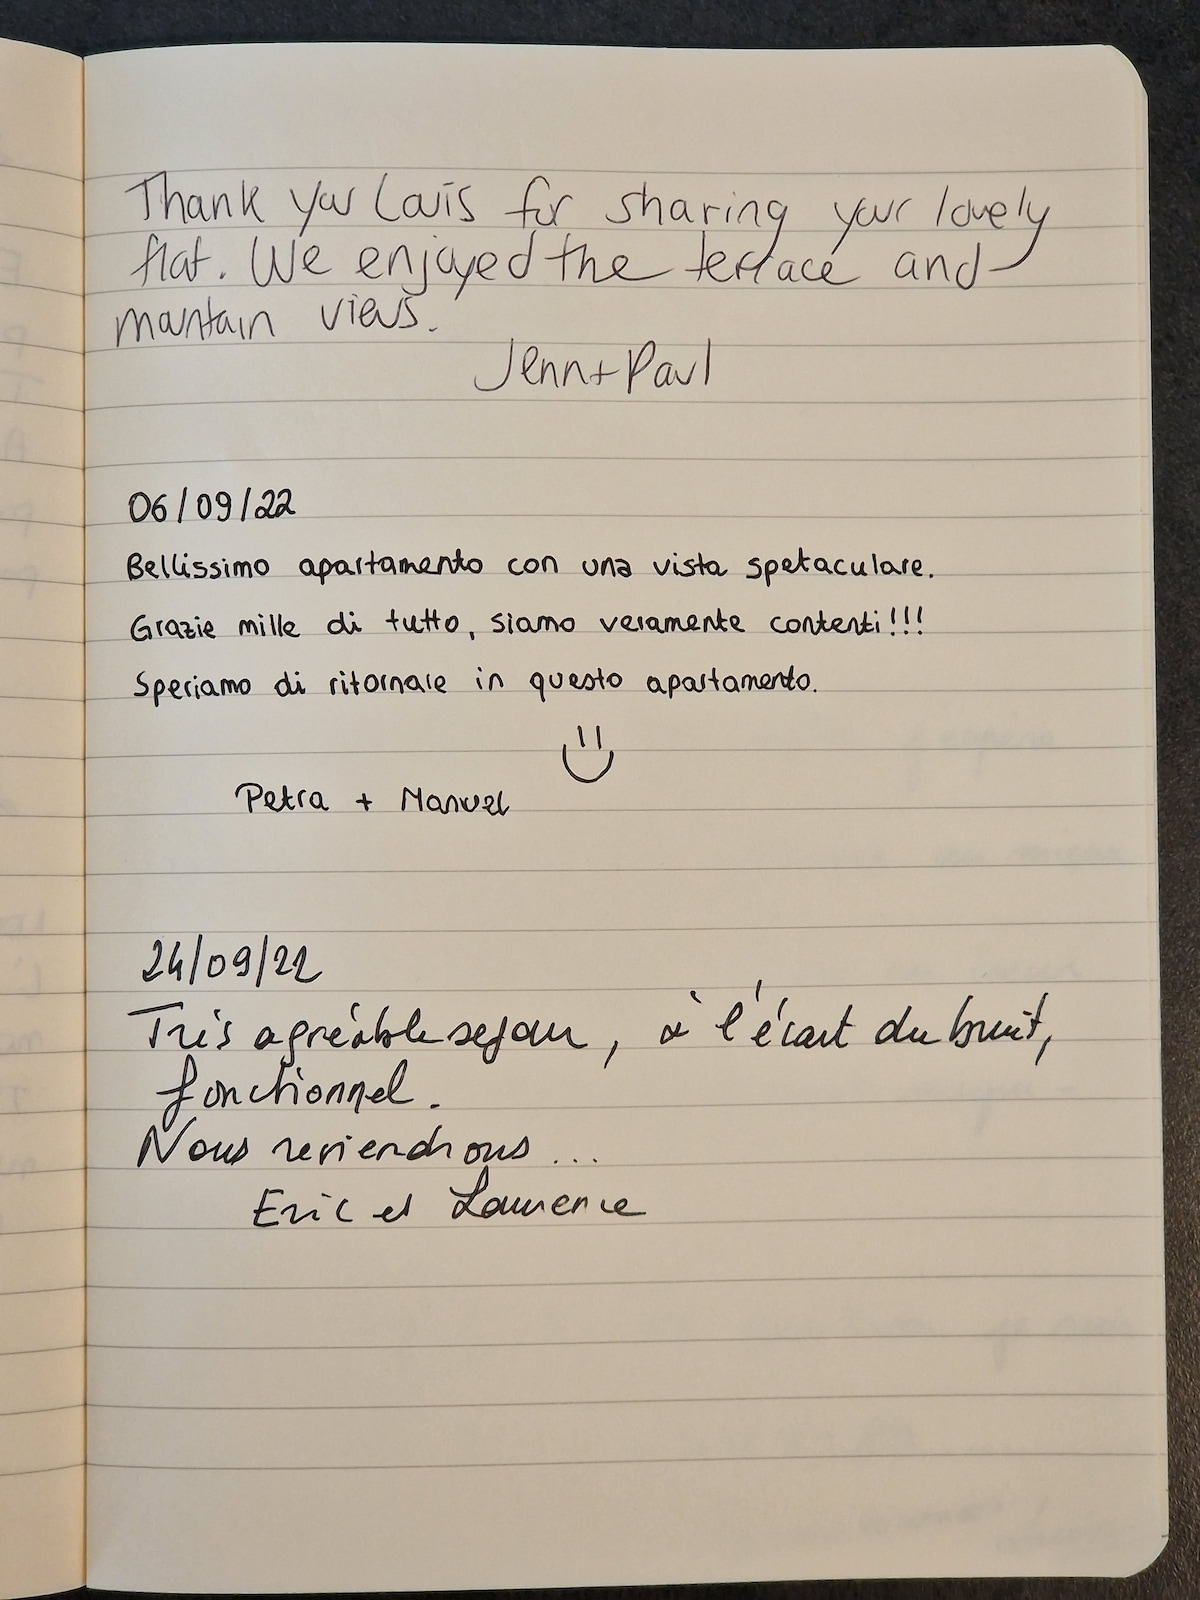 Thank you Louis for sharing your lovely
flat. We enjoyed the terrace and
mountain views.
Jenn + Paul
06/09/22
Bellissimo apartamento con una vista spetaculare.
Grazie mille di tutto, siamo veramente contenti!!!
Speriamo di ritornare in questo apartamento.
Petra + Manuel
24/09/22
Très agréable sejour, à l'écart du bruit,
fonctionnel.
Nous reviendrons...
Eric et Laurence